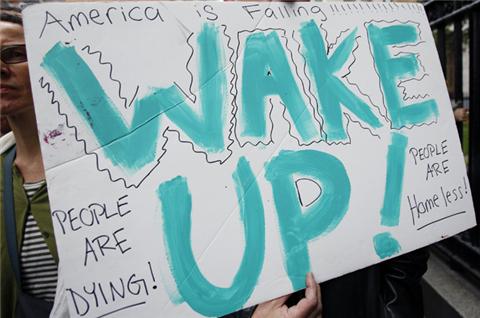 America is Falling!!!!!!!!!!!!!
WAKE
UP!
PEOPLE
ARE
DYING!
PEOPLE
ARE
Homeless!